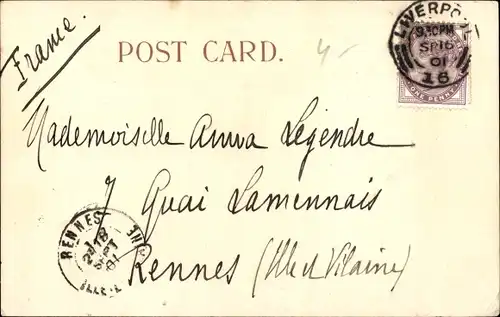 France.
POST CARD.
4-
LIVERPOOL
9.30PM
SP 16
01
16
ONE PENNY
Mademoiselle Anna Légendre
7 Quai Lamennais
Rennes (Ille et Vilaine)
RENNES
18
SEPT
01